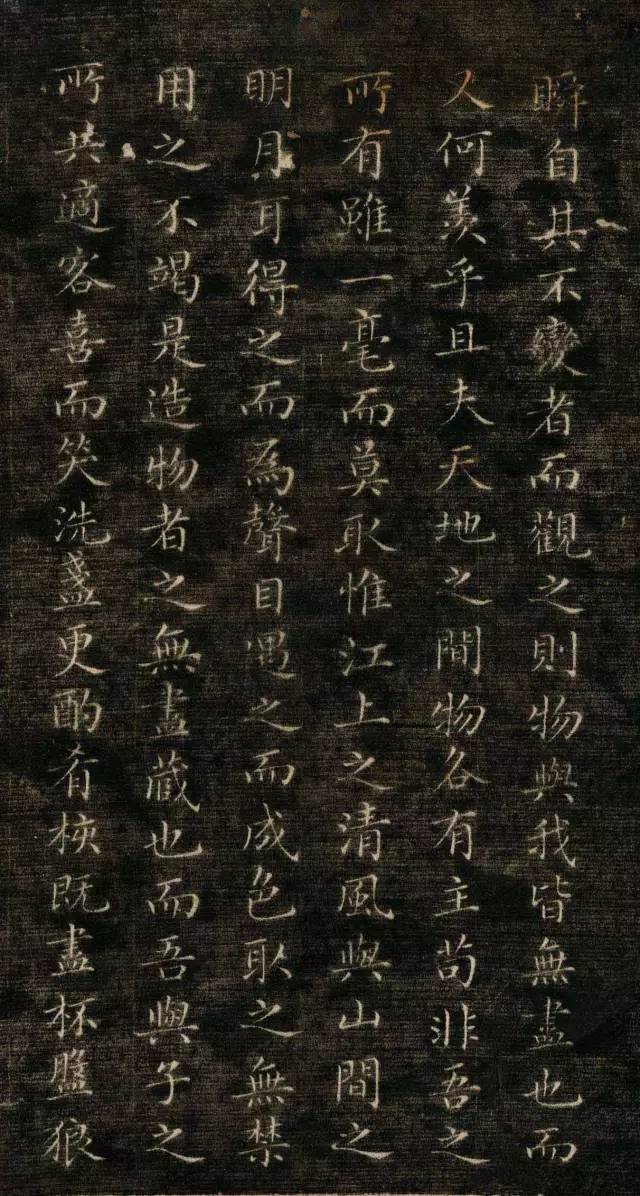 瞬自其不變者而觀之則物與我皆無盡也而
人何羡乎且夫天地之間物各有主苟非吾之
所有雖一毫而莫取惟江上之清風與山間之
明月耳得之而為聲目遇之而成色取之無禁
用之不竭是造物者之無盡藏也而吾與子之
所共適客喜而笑洗盞更酌肴核既盡杯盤狼